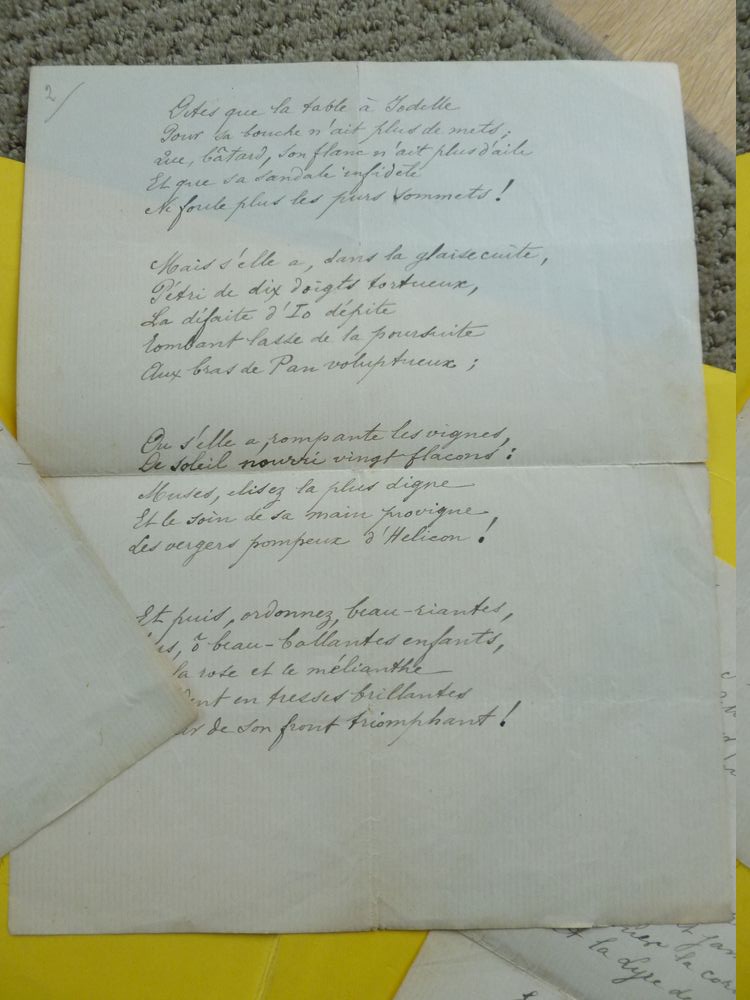 2/
Dites que la table à Jodelle
Pour sa bouche n'ait plus de mets;
Que, bâtard, son flanc n'ait plus d'aile
Et que sa sandale infidèle
Ne foule plus les purs sommets!
Mais s'elle a, dans la glaise cuite,
Pétri de dix doigts tortueux,
La défaite d'Io dépite
Tombant lasse de la poursuite
Aux bras de Pan voluptueux;
Ou s'elle a, rompante les vignes,
De soleil nourri vingt flacons:
Muses, elisez la plus digne
Et le soin de sa main provigne
Les vergers pompeux d'Helicon!
Et puis, ordonnez, beau-riantes,
ô beau-ballantes enfants,
la rose et le mélianthe
en tresses brillantes
de son front triomphant!
la cor
la Lyre de